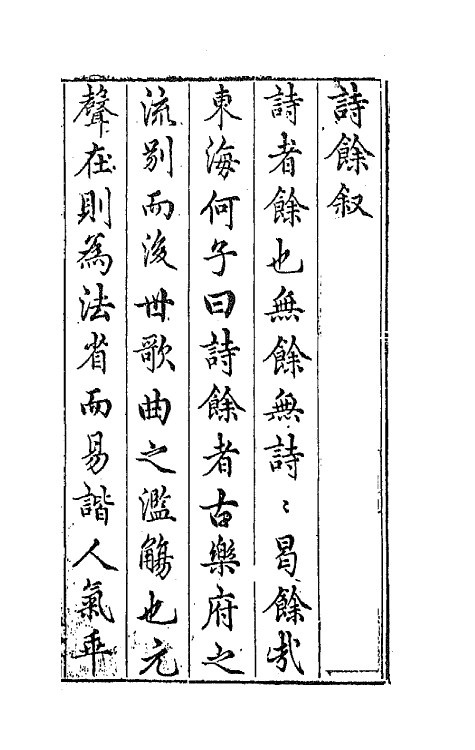 詩餘叙
詩者餘也無餘無詩〻曷餘哉
東海何子曰詩餘者古樂府之
流别而後世歌曲之濫觴也元
聲在則為法省而易諧人氣乖